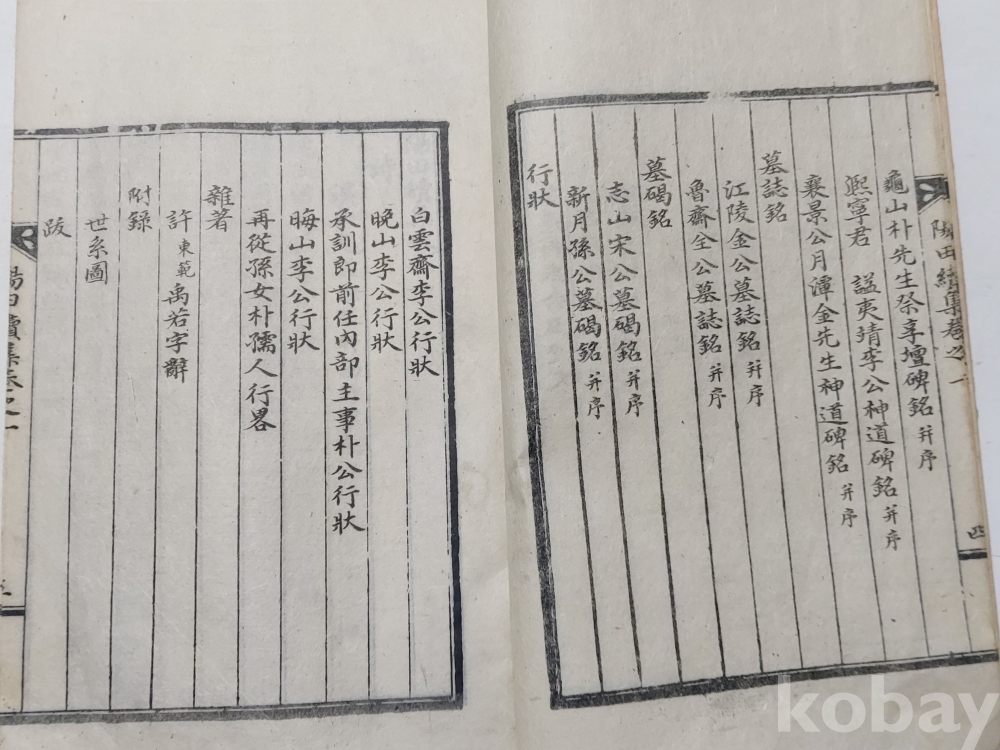 陽田續集卷之一
四
龜山朴先生祭享壇碑銘 并序
熙寧君 諡夷靖李公神道碑銘 并序
襄景公月潭金先生神道碑銘 并序
墓誌銘
江陵金公墓誌銘 并序
魯齋全公墓誌銘 并序
墓碣銘
志山宋公墓碣銘 并序
新月孫公墓碣銘 并序
行狀
白雲齋李公行狀
晩山李公行狀
承訓郎前任內部主事朴公行狀
晦山李公行狀
再從孫女朴孺人行畧
雜著
許 東範 禹若字辭
附錄
世系圖
跋
陽田續集卷之一
kobay